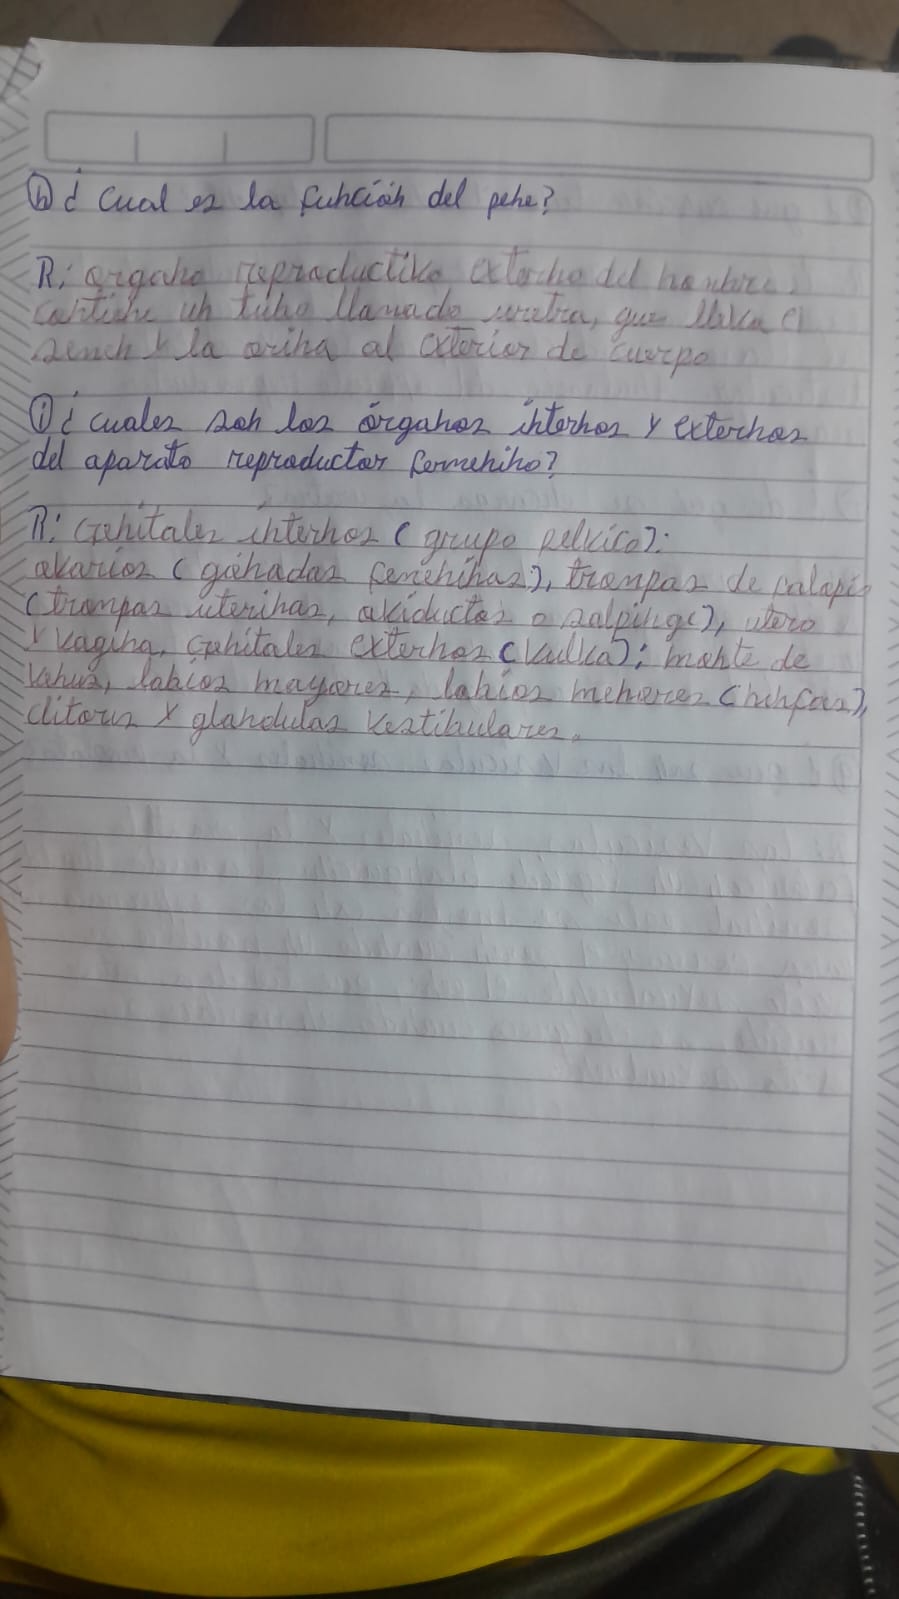 h) ¿Cual es la función del pene?
R: organo reproductivo externo del hombre.
contiene un tubo llamado uretra, que lleva el
semen y la orina al exterior de cuerpo
i) ¿cuales son los órganos internos y externos
del aparato reproductor femenino?
R: Genitales internos (grupo pelvico):
ovarios (gónadas femeninas), trompas de falopio
(trompas uterinas, oviductos o salpinge), utero
y vagina. Genitales externos (vulva): monte de
venus, labios mayores, labios menores (ninfas),
clitoris y glandulas vestibulares.